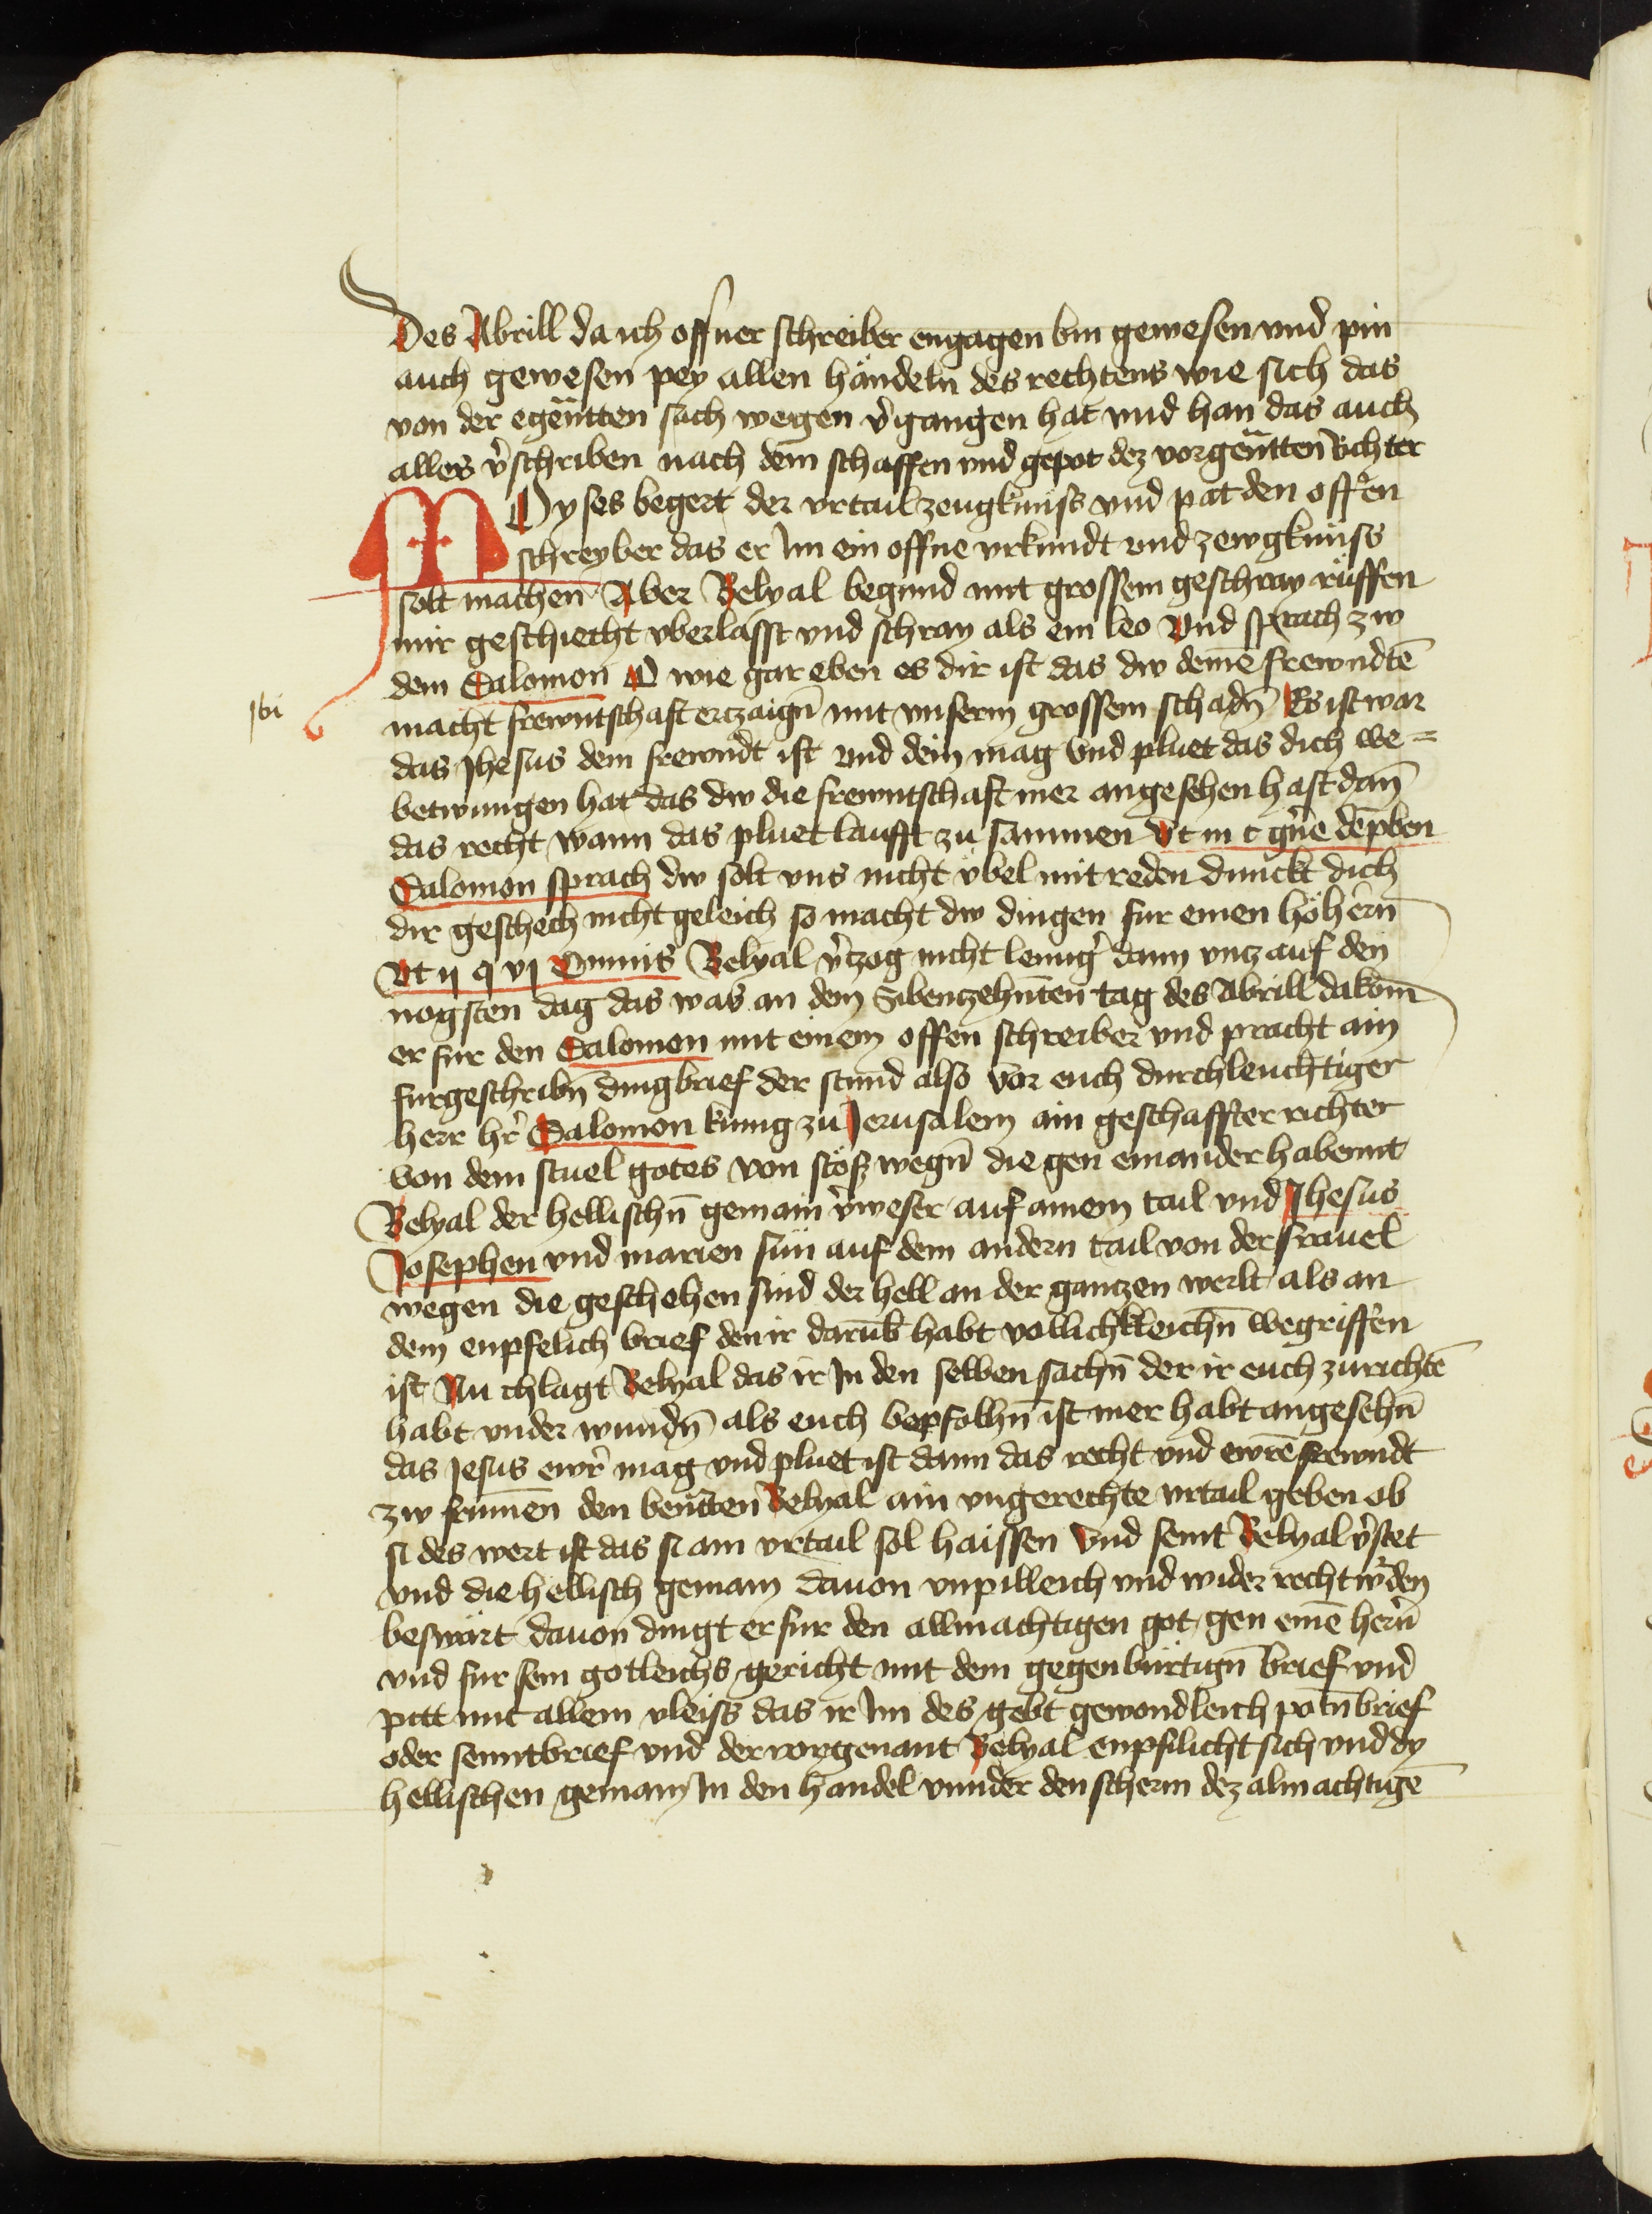 Des Abrill da ich offner schreiber engagen bin gewesen vnd pin
auch gewesen pey allen händeln des rechtens wie sich das
von der egenn̄tten sach wegen v̉gangen hat vnd han das auch
alles v̉schriben nach dem schaffen vnd gepot dez vorgenn̄tten richter
MOyses begert der vrtail zeugknüss vnd pat den offen
schreyber das er Im ein offne vrkundt vnd zewgknüss
solt machen Aber Belyal begund mit grossem geschray rüffen
mir geschiecht vberlasst vnd schray als ein leo Vnd sprach zw
dem Salomon O wie gar eben es dir ist das dw deinē frewndtē
macht frewntschaft ertzaign̄ mit vnserm grossem schadn̄ Es ist war
das Jhesus dein frewndt ist vnd dein mag vnd pluet das dich we=
betwungen hat das dw die frewntschaft mer angesehen hast dan̄
das recht wann das pluet laufft zu sammen Vt in c
Salomon sprach dw solt vns nicht v̈bel mit reden dunckt dich
dir geschech nicht geleich so macht dw dingen fur einen höhern̄
Vt ij q vj Omnis Belyal v̉tzog nicht lenng̉ dann vnz auf den
nogsten dag das was an dem Sibentzehn̄ten tag des Abrill da kom̄
er fur den Salomon mit einem offen schreiber vnd pracht ain
furgeschribn̄ dingbrief der stund also vor euch durchleuchtiger
herr hr̉ Salomon kunig zu Jerusalem ain geschaffter richter
von dem stuel gotes von stöss wegn̄ die gen einander habennt
Belyal der hellischn̄ gemain v̉weser auf ainem tail vnd Jhesus
Josephen vnd marien sün auf dem andern tail von der frauel
wegen die geschehen sind der hell an der gantzen werlt als an
dem enpfelich brief den ir darūb habt vollichkleichn̄ wegriffen
ist Nu chlagt Belyal das ir In den selben sachn̄ der ir euch zurichtē
habt vnder wundn̄ als euch bepfolhn̄ ist mer habt angesehn̄
das Jesus ewr̉ mag vnd pluet ist dann das recht vnd ewrē frewndt
zw frumen̄ den ben̄tten Belyal ain vngerechte vrtail geben ob
si des wert ist das si ain vrtail sol haissen Vnd seint Belyal v̉stet
vnd die hellisch gemain dauon vnpilleich vnd wider recht w̉den
beswärt dauon dingt er fur den allmachtigen got gen einē hern̉
vnd fur sein gotleichs gericht mit dem gegenbürtign̄ brief vnd
pitt mit allem vleiss das ir Im des gebt gewondleich potn̄brief
oder senntbrief vnd der vorgenant Belyal enpfilicht sich vnd dy
hellischen gemain In den handel vnnder den scherm dez almachtigē